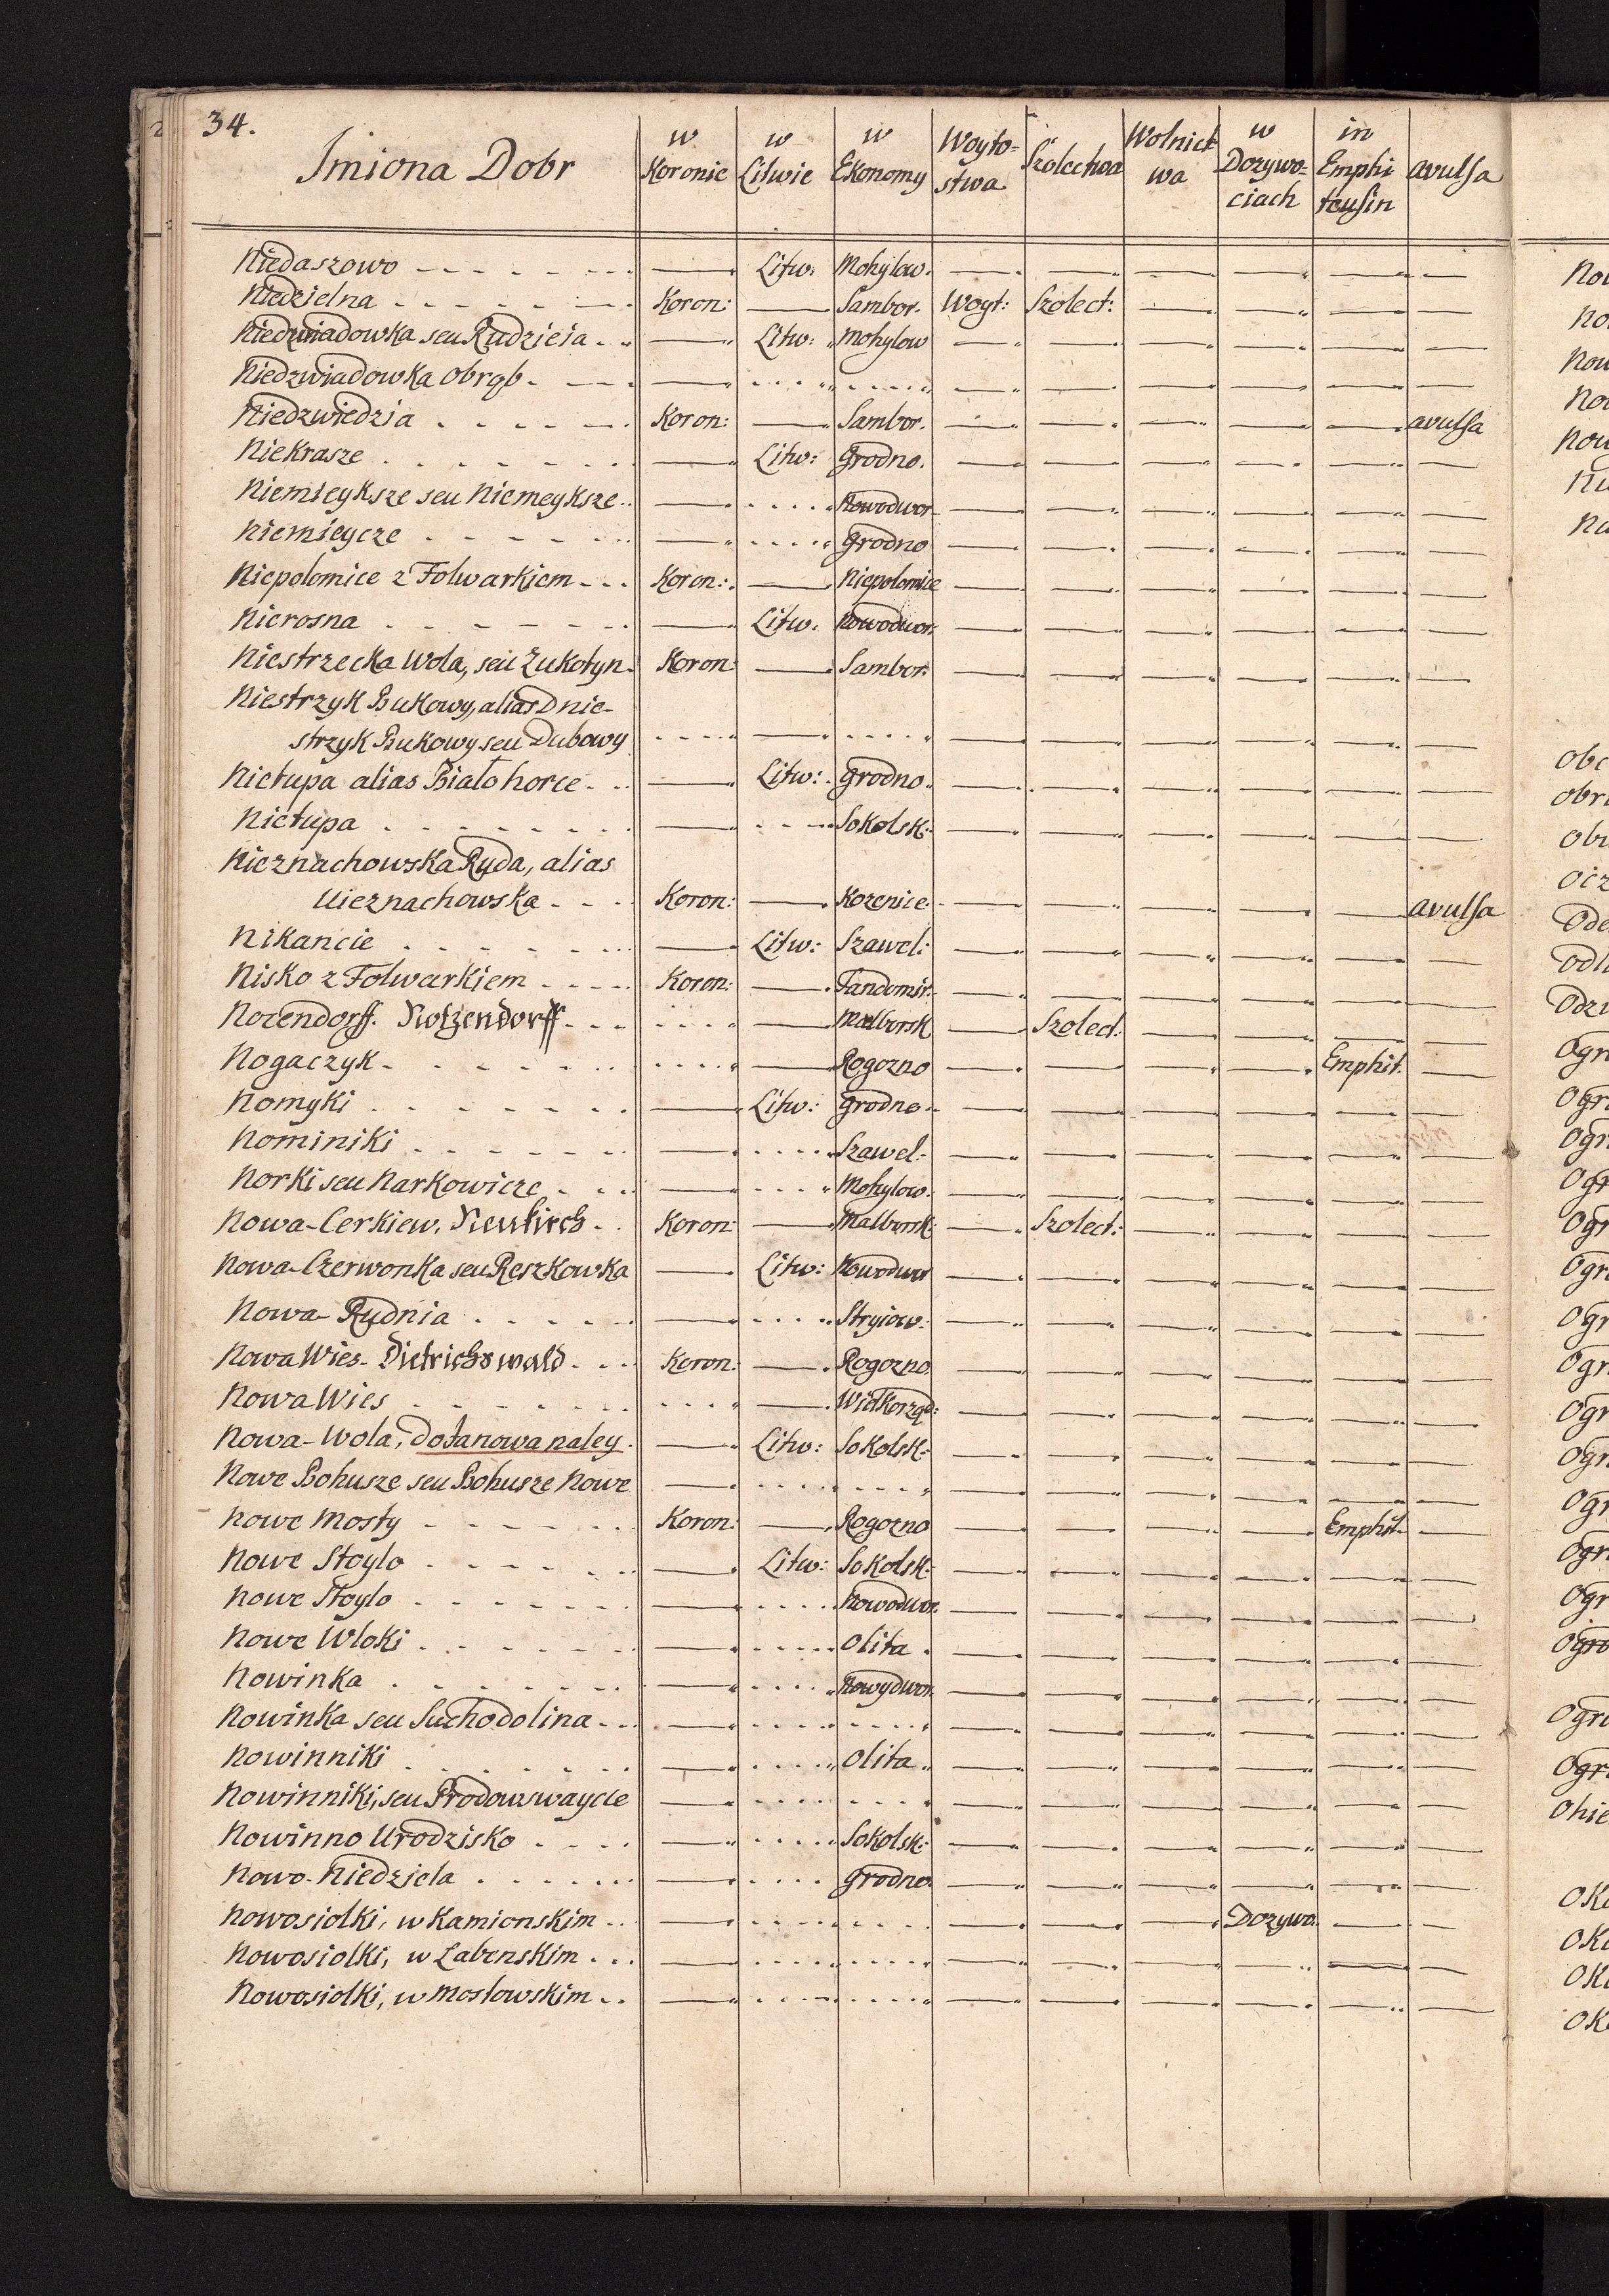 34.
Imiona Dobr
w Koronie
w Litwie
w Ekonomy
Woyto-stwa
Szolectwa
Wolnict wa
w Dozywo-ciach
in Emphi teusin
avulsa
Niedaszowo - - - Litw: Mohylow.
Niedzielna - - - Koron: Sambor. Woyt: Szolect:
Niedzwiadowka seu Rudzieia - - Litw: Mohylow
Niedzwiadowka Obrąb - - -
Niedzwiedzia - - - Koron: Sambor. avulsa
Niekrasze - - - Litw: Grodno.
Niemieyksze seu Niemeyksze - - Nowodwor
Niemieycze - - - Grodno
Niepolomice z Folwarkiem - - - Koron: Niepolomice
Nierosna - - - Litw: Nowodwor:
Niestrzecka Wola, seu Zukotyn - Koron: Sambor:
Niestrzyk Bukowy, alias Dnie-
strzyk Bukowy seu Dubowy
Nietupa alias Białohorce - - Litw: Grodno.
Nietupa - - - Sokolsk:
Nieznachowska Ruda, alias
Uieznachowska - - - Koron: Kozenice: avulsa
Nikancie - - - Litw: Szawel:
Nisko z Folwarkiem - - - Koron: Sandomir:
Nocendorff. Notzendorff - - - Malborsk Szolect:
Nogaczyk - - - Rogozno Emphit:
Nomyki - - - Litw: Grodno.
Nominiki - - - Szawel.
Norki seu Narkowicze - - - Mohylow.
Nowa-Cerkiew. Neukirch - - Koron: Malborsk: Szolect:
Nowa-Czerwonka seu Reszkowka Litw: Nowodwor
Nowa-Rudnia - - - Stryiow:
Nowa Wies. Dietrichswald - - - Koron: Rogozno.
Nowa Wies - - - Wielkorząd:
Nowa-Wola, do Janowa należy. Litw: Sokolsk:
Nowe Bohusze seu Bohusze Nowe
Nowe Mosty - - - Koron: Rogozno Emphit.
Nowe Stoylo - - - Litw: Sokolsk:
Nowe Stoylo - - - Nowodwor.
Nowe Wloki - - - Olita
Nowinka - - - Nowydwor.
Nowinka seu Suchodolina - - -
Nowinniki - - - Olita
Nowinniki, seu
Nowinno Urodzisko - - - Sokolsk:
Nowo-Niedziela - - - Grodno.
Nowosiolki, w Kamionskim - - Dozywo.
Nowosiolki, w Łabenskim - - -
Nowosiolki, w Mostowskim - -